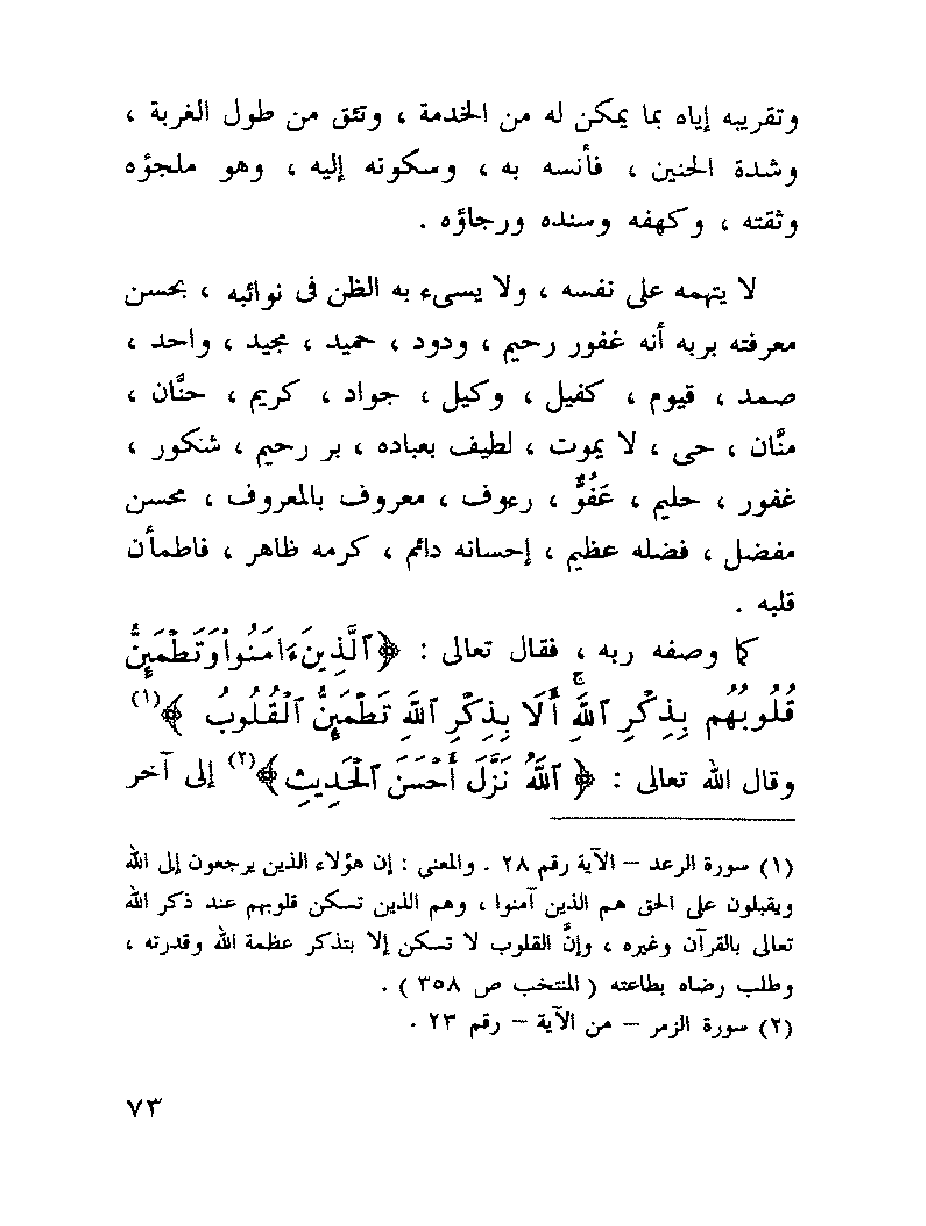 وتقريبه إياه بما يمكن له من الخدمة ، وتثق من طول الغربة ،
وشدة الحنين ، فأنسه به ، وسكونه إليه ، وهو ملجؤه
وثقته ، وكهفه وسنده ورجاؤه .
لا يتهمه على نفسه ، ولا يسىء به الظن فى نوائبه ، بحسن
معرفته بربه أنه غفور رحيم ، ودود ، حميد ، مجيد ، واحد ،
صمد ، قيوم ، كفيل ، وكيل ، جواد ، كريم ، حنَّان ،
منَّان ، حى ، لا يموت ، لطيف بعباده ، بر رحيم ، شكور ،
غفور ، حليم ، عَفُوٌّ ، رءوف ، معروف بالمعروف ، محسن
مفضل ، فضله عظيم ، إحسانه دائم ، كرمه ظاهر ، فاطمأن
قلبه .
كما وصفه ربه ، فقال تعالى : ﴿ ٱلَّذِينَ ءَامَنُوا۟ وَتَطْمَئِنُّ
قُلُوبُهُم بِذِكْرِ ٱللَّهِ ۗ أَلَا بِذِكْرِ ٱللَّهِ تَطْمَئِنُّ ٱلْقُلُوبُ ﴾(١)
وقال الله تعالى : ﴿ ٱللَّهُ نَزَّلَ أَحْسَنَ ٱلْحَدِيثِ ﴾(٢) إلى آخر
(١) سورة الرعد – الآية رقم ٢٨ . والمعني : إن هؤلاء الذين يرجعون إلى الله
ويقبلون على الحق هم الذين آمنوا ، وهم الذين تسكن قلوبهم عند ذكر الله
تعالى بالقرآن وغيره ، وإنَّ القلوب لا تسكن إلا بتذكر عظمة الله وقدرته ،
وطلب رضاه بطاعته ( المنتخب ص ٣٥٨ ) .
(٢) سورة الزمر – من الآية – رقم ٢٣ .
٧٣